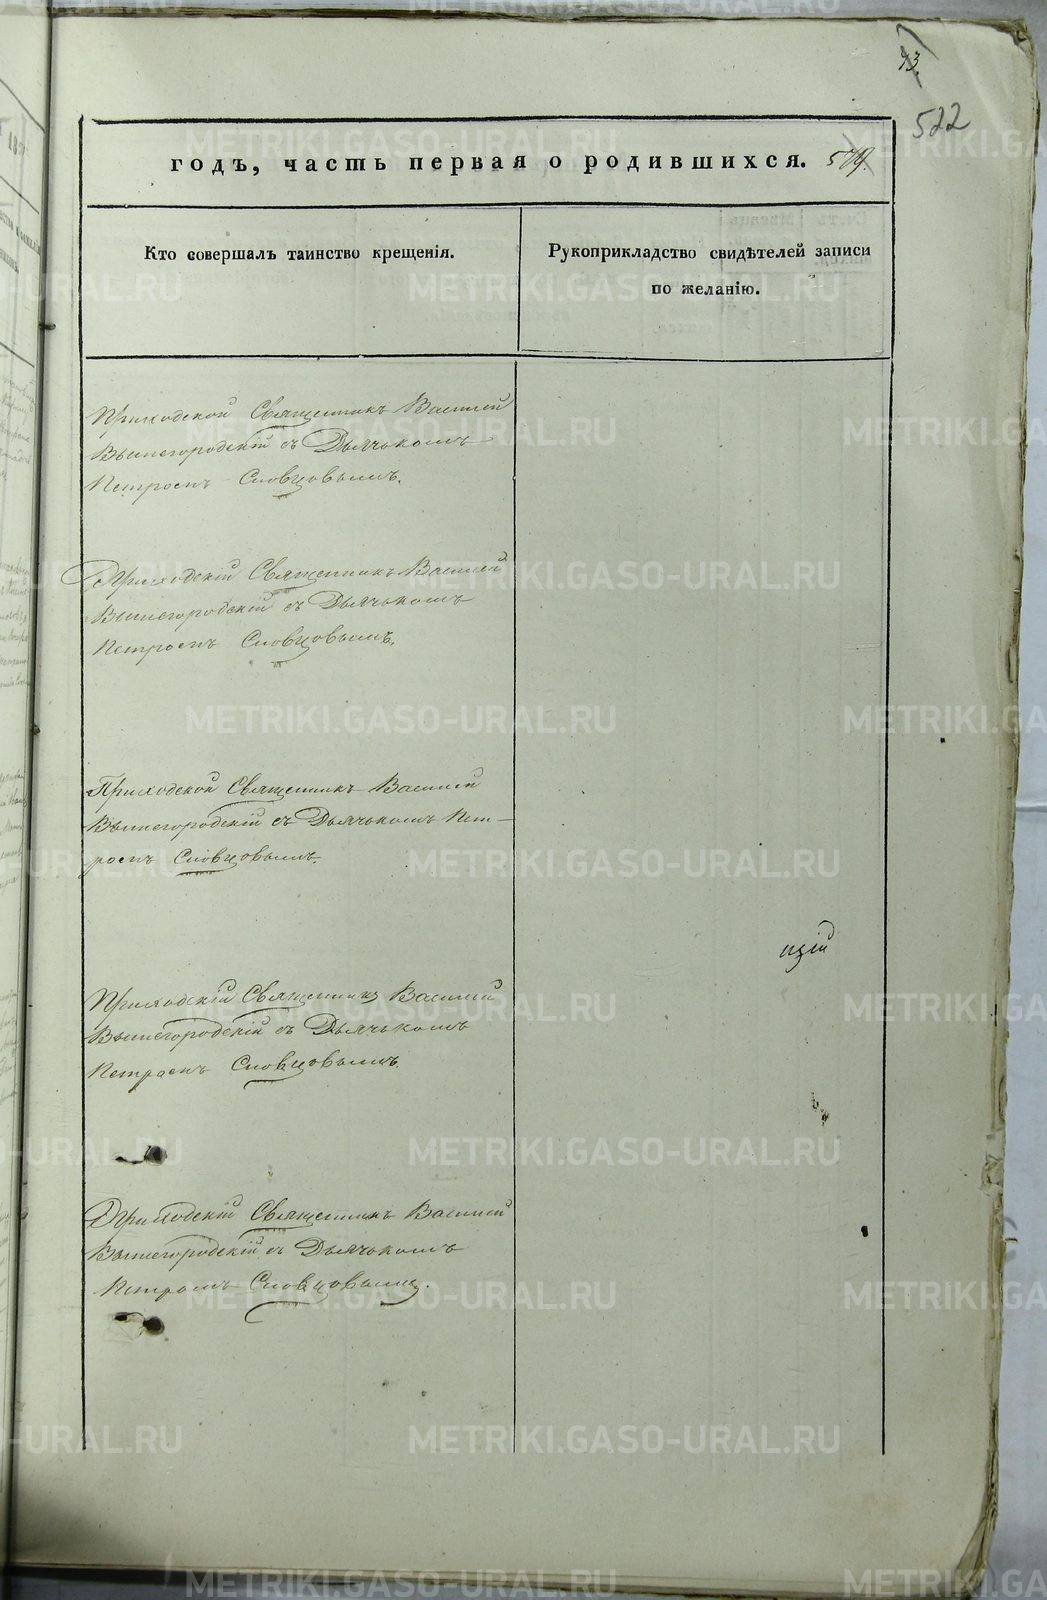 93.
522
годъ, часть первая о родившихся. 579.
Кто совершалъ таинство крещенія.
Рукоприкладство свидѣтелей записи
по желанію.
Приходской Священникъ Василій
Вышегородскій съ Дьячькомъ
Петромъ Словцовымъ.
Приходскій Священникъ Василій
Вышегородскій съ Дьячькомъ
Петромъ Словцовымъ.
Приходской Священникъ Василій
Вышегородскій съ Дьячькомъ Пет-
ромъ Словцовымъ.
цій
Приходскій Священникъ Василій
Вышегородскій съ Дьячькомъ
Петромъ Словцовымъ.
Приходскій Священникъ Василій
Вышегородскій съ Дьячькомъ
Петромъ Словцовымъ.
METRIKI.GASO-URAL.RU